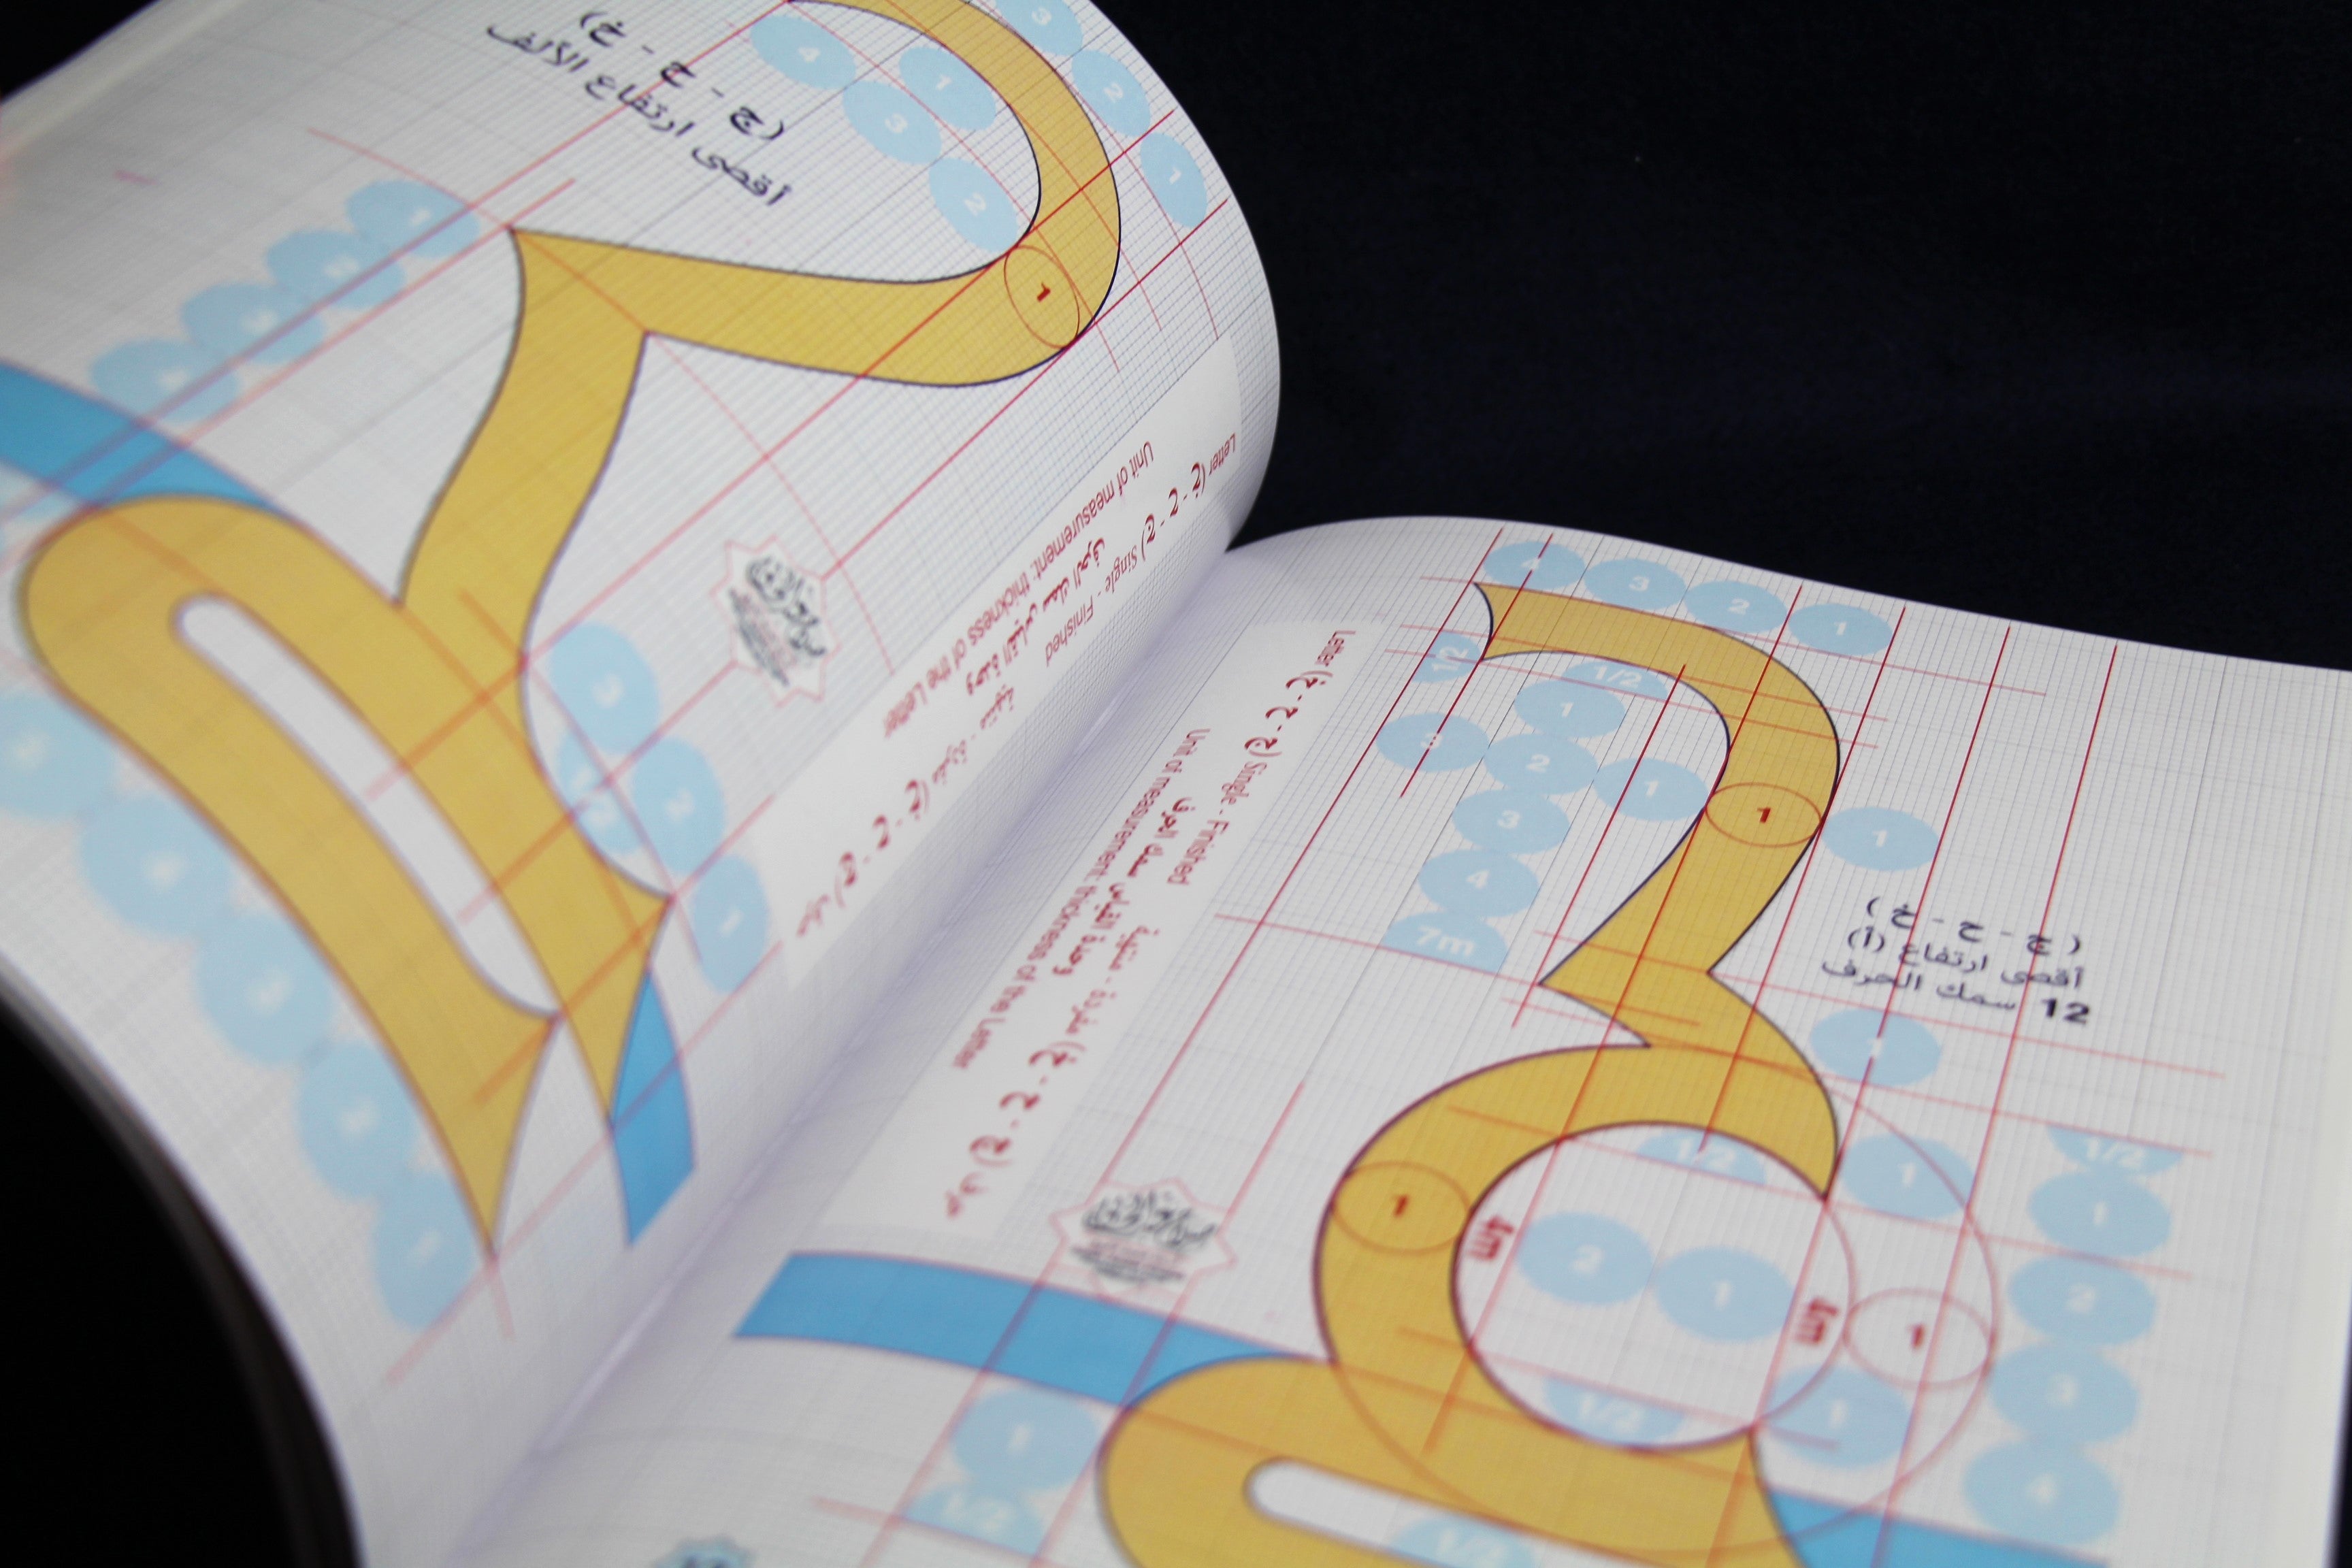 (ج - ح - خ)
أقصى ارتفاع الألف
4
1
3
2
3
2
1
1
1
Letter (ج - ح - خ) Single - Finished
حرف (ج - ح - خ) مفردة - منتهية
Unit of measurement: thickness of the Letter
وحدة القياس سمك الحرف
3
2
1/2
1
Letter (ج - ح - خ) Single - Finished
حرف (ج - ح - خ) مفردة - منتهية
Unit of measurement: thickness of the Letter
وحدة القياس سمك الحرف
4
3
2
1
1/2
1/2
1
2
1
3
4
7m
1
1
( ج - ح - خ )
أقصى ارتفاع (أ)
12 سمك الحرف
1/2
1
1/2
1
2
3
4
1
4m
2
1
4m
1
1/2
1
1
1/2
1/2